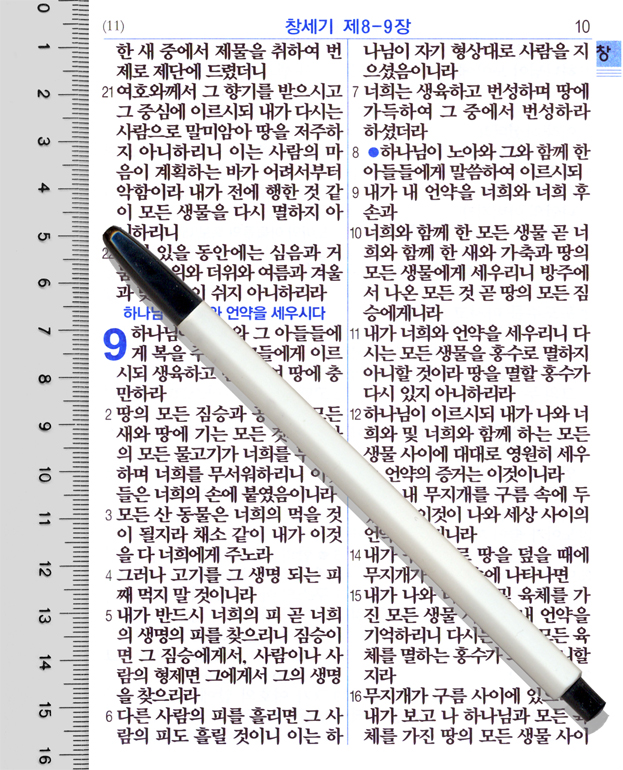 (11)
창세기 제8-9장
10
창
한 새 중에서 제물을 취하여 번
제로 제단에 드렸더니
21 여호와께서 그 향기를 받으시고
그 중심에 이르시되 내가 다시는
사람으로 말미암아 땅을 저주하
지 아니하리니 이는 사람의 마
음이 계획하는 바가 어려서부터
악함이라 내가 전에 행한 것 같
이 모든 생물을 다시 멸하지 아
하리니
있을 동안에는 심음과 거
위와 더위와 여름과 겨울
과 쉬지 아니하리라
하나님 언약을 세우시다
9 하나님 와 그 아들들에
게 복을 들에게 이르
시되 생육하고 땅에 충
만하라
2 땅의 모든 짐승과 모든
새와 땅에 기는 모든
의 모든 물고기가 너희를
하며 너희를 무서워하리니
들은 너희의 손에 붙였음이니라
3 모든 산 동물은 너희의 먹을 것
이 될지라 채소 같이 내가 이것
을 다 너희에게 주노라
4 그러나 고기를 그 생명 되는 피
째 먹지 말 것이니라
5 내가 반드시 너희의 피 곧 너희
의 생명의 피를 찾으리니 짐승이
면 그 짐승에게서, 사람이나 사
람의 형제면 그에게서 그의 생명
을 찾으리라
6 다른 사람의 피를 흘리면 그 사
람의 피도 흘릴 것이니 이는 하
나님이 자기 형상대로 사람을 지
으셨음이니라
7 너희는 생육하고 번성하며 땅에
가득하여 그 중에서 번성하라
하셨더라
8 ●하나님이 노아와 그와 함께 한
아들들에게 말씀하여 이르시되
9 내가 내 언약을 너희와 너희 후
손과
10 너희와 함께 한 모든 생물 곧 너
희와 함께 한 새와 가축과 땅의
모든 생물에게 세우리니 방주에
서 나온 모든 것 곧 땅의 모든 짐
승에게니라
11 내가 너희와 언약을 세우리니 다
시는 모든 생물을 홍수로 멸하지
아니할 것이라 땅을 멸할 홍수가
다시 있지 아니하리라
12 하나님이 이르시되 내가 나와 너
희와 및 너희와 함께 하는 모든
생물 사이에 대대로 영원히 세우
언약의 증거는 이것이니라
내 무지개를 구름 속에 두
이것이 나와 세상 사이의
니라
14 내가 땅을 덮을 때에
무지개가 에 나타나면
15 내가 나와 및 육체를 가
진 모든 생물 내 언약을
기억하리니 다시는 모든 육
체를 멸하는 홍수가 할
지라
16 무지개가 구름 사이에
내가 보고 나 하나님과 모든
체를 가진 땅의 모든 생물 사이
0
1
2
3
4
5
6
7
8
9
10
11
12
13
14
15
16